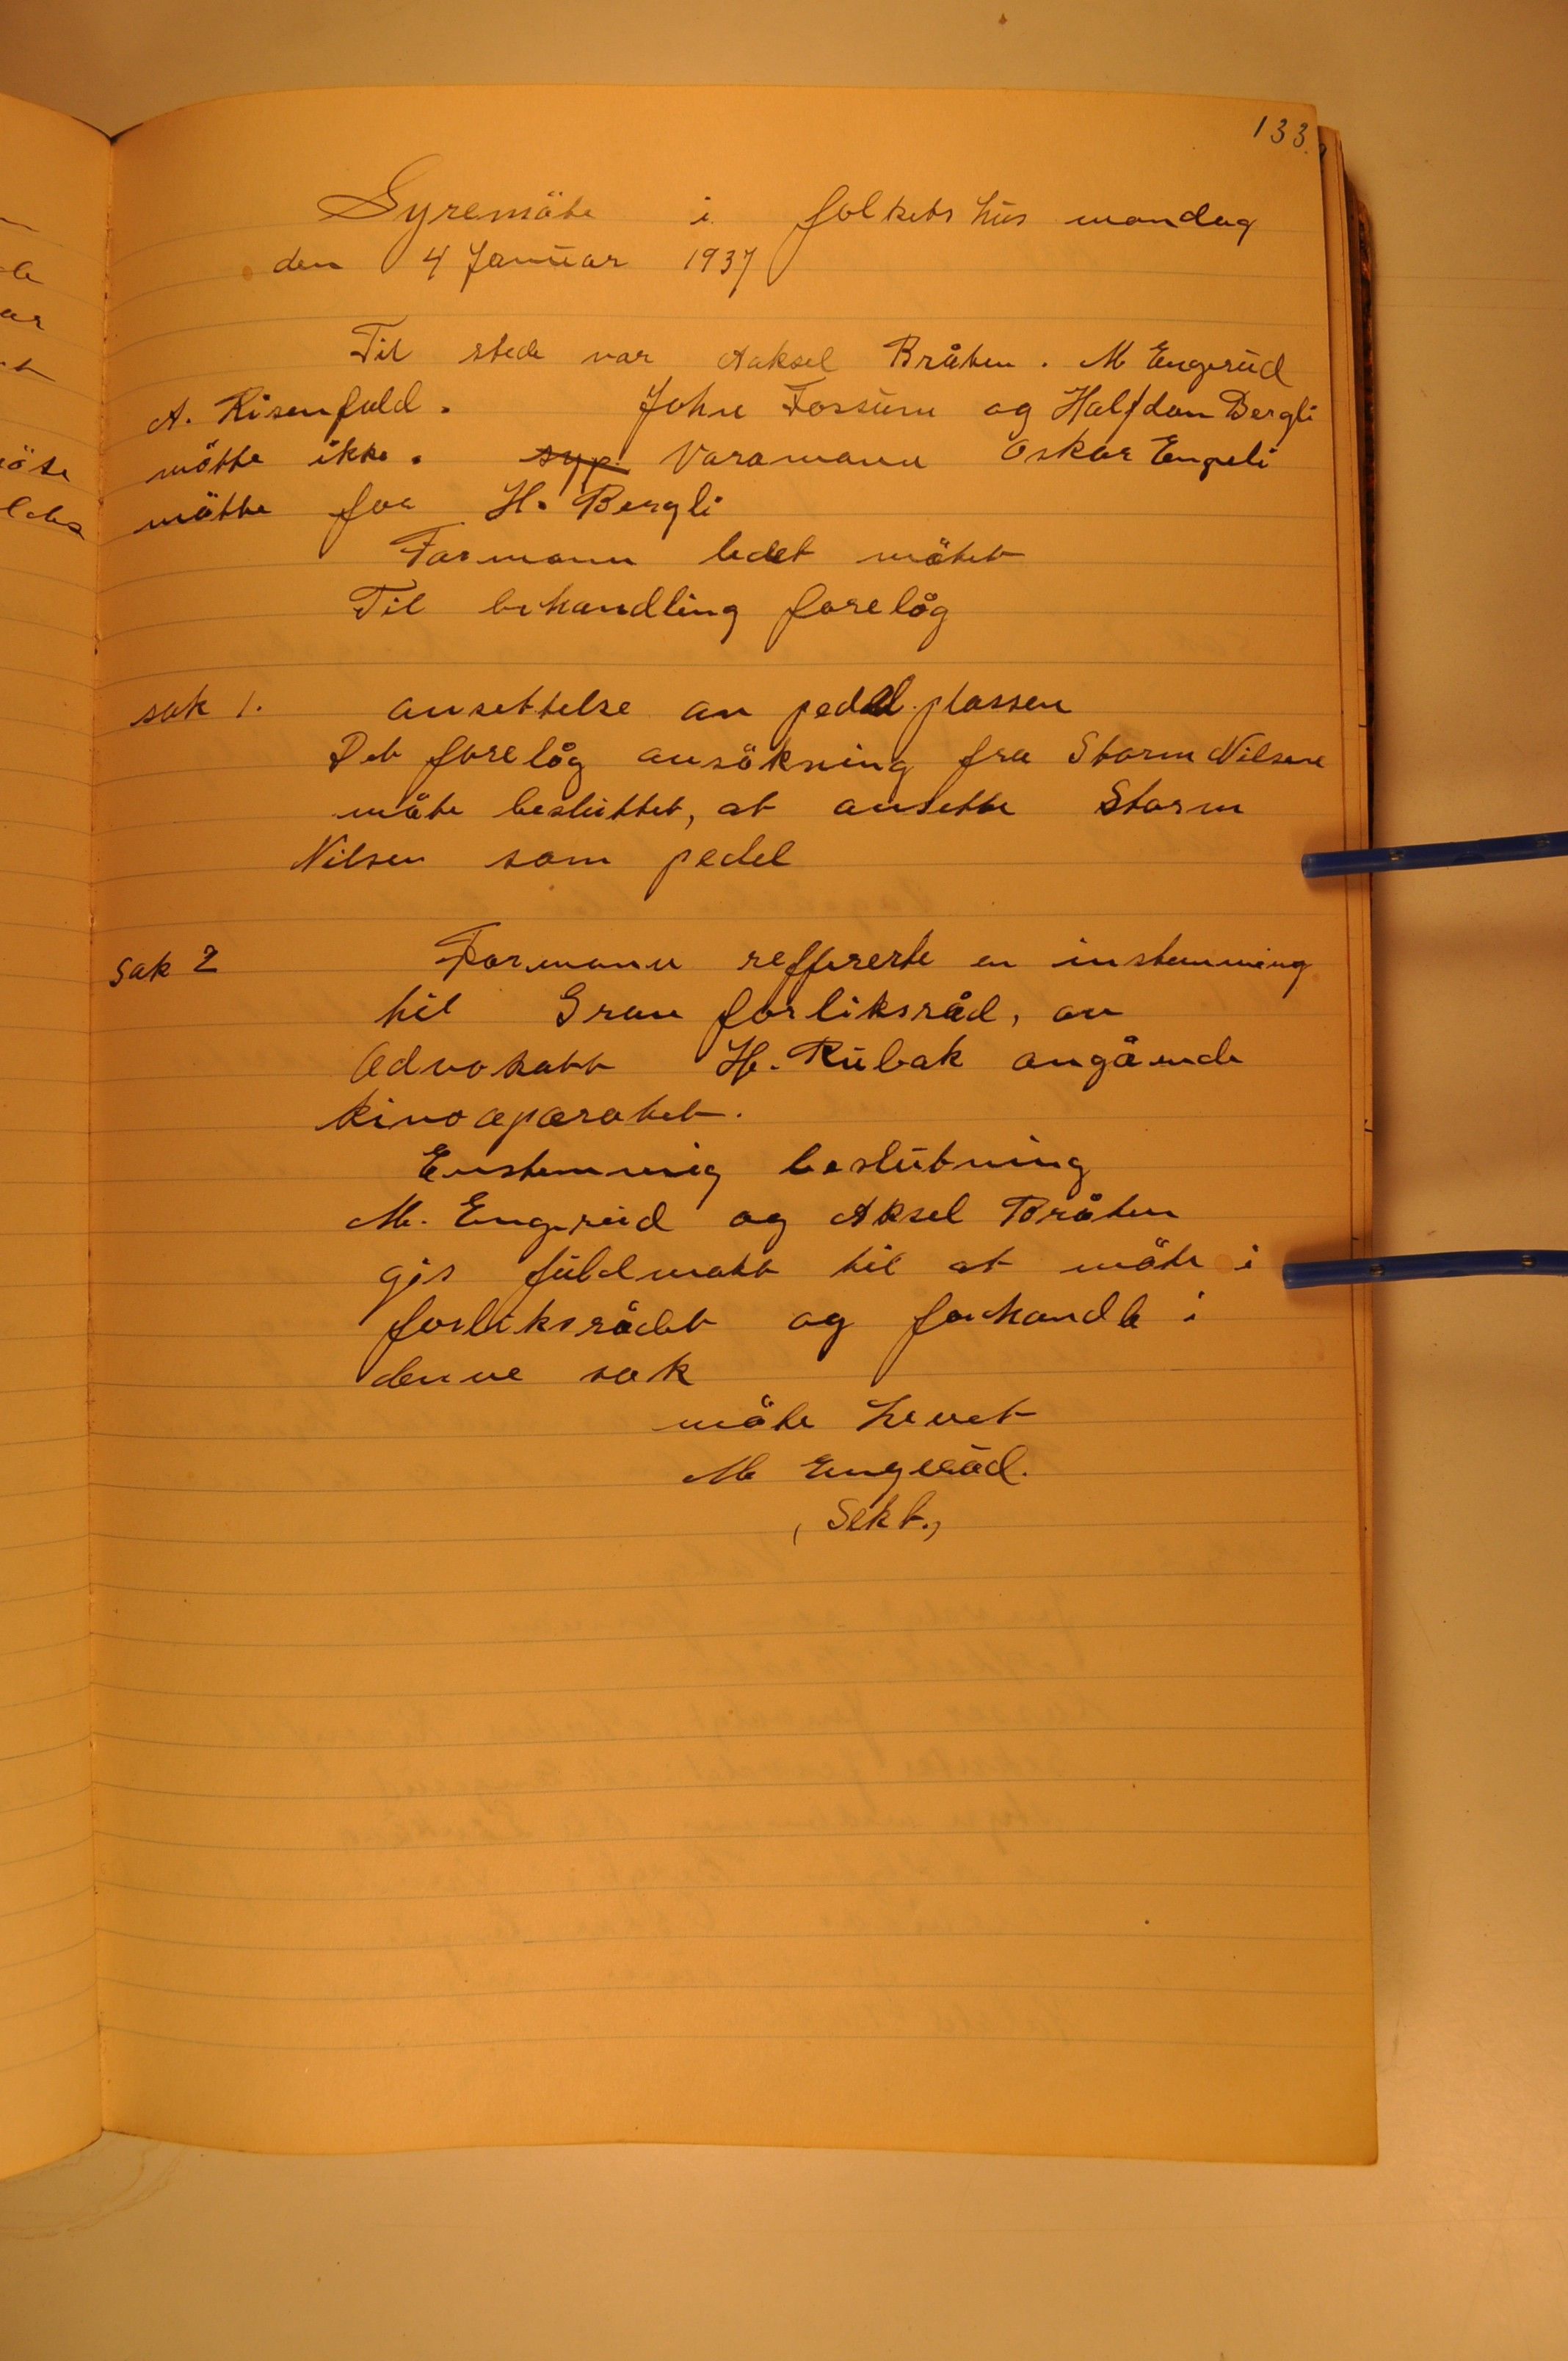 133.
Syremöte i folkets hus mandag
den 4 Januar 1937
Til stede var Aaksel Bråten. M Engerud
A. Risenfald. John Fossum og Halfdan Bergli
mötte ikke. syp. Varamann Oskar Engeli
mötte for H. Bergli
Formann ledet mötet
Til behandling forelåg
sak 1. ansettelse av pedelplassen
Det forelåg ansökning fra Storm Nilsen
möte besluttet, at ansette Storm
Nilsen som pedel
Sak 2 Formann reffererte en instemning
til Gran forliksråd, av
Advokatt H. Rubak angående
kinoaparatet.
Enstemmig beslutning
M. Engerud og Aksel Bråten
gis fuldmakt til at möte i
forliksrådet og forhandle i
denne sak
möte hevet
M Engerud.
(Sekt.)